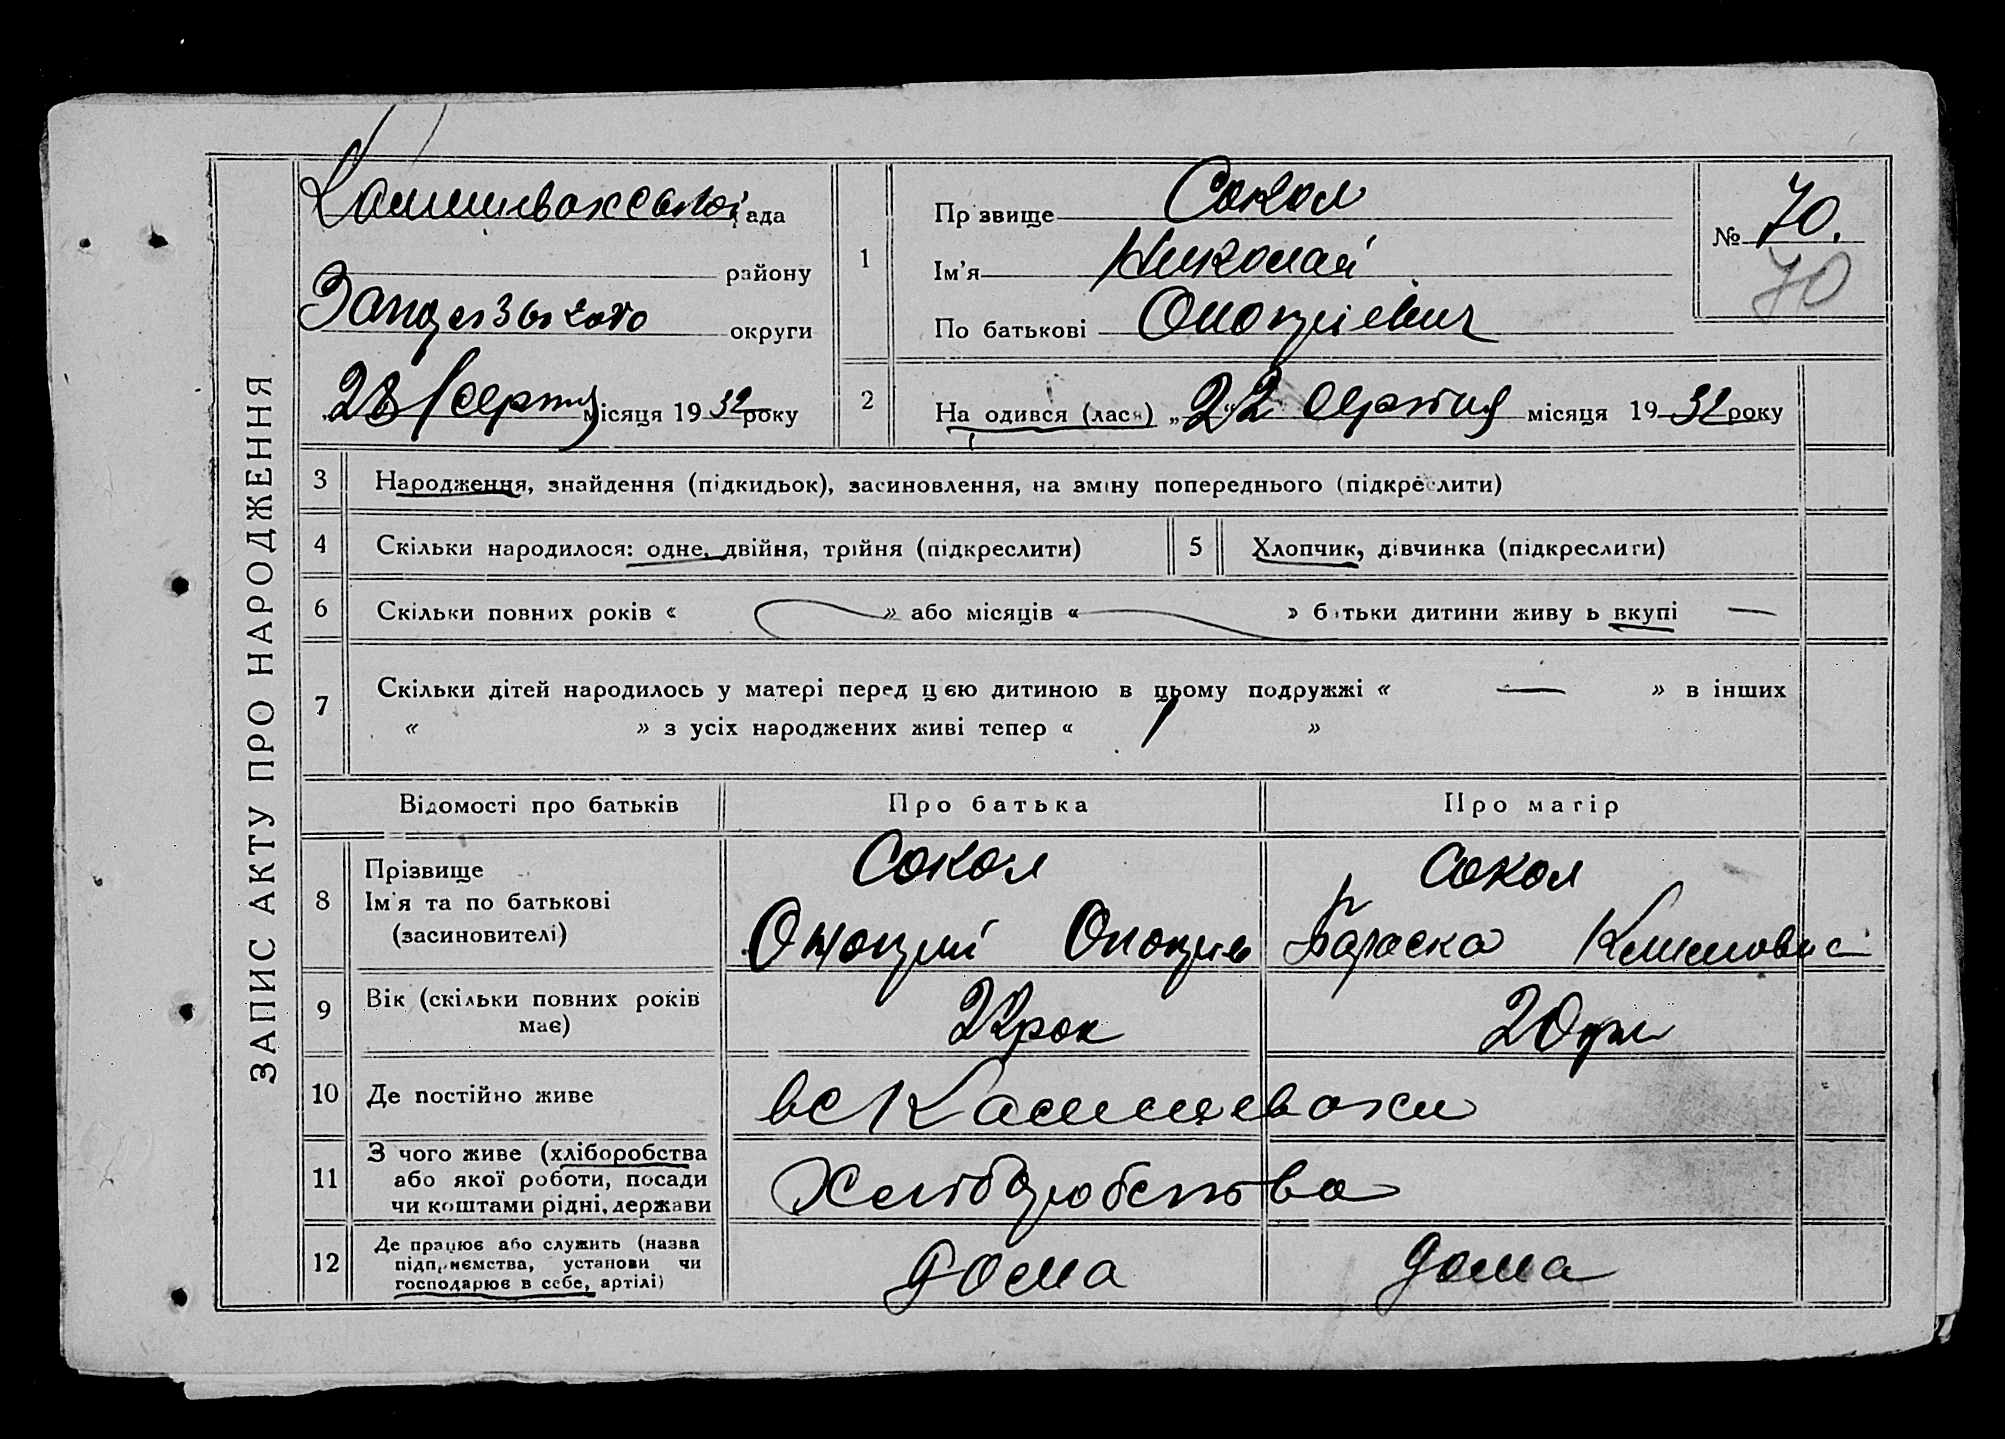 ЗАПИС АКТУ ПРО НАРОДЖЕННЯ
рада
району
округи
28 серпня місяця 1932 року
1
Прізвище Сокол
Ім'я Николай
По батькові
№ 70.
70
2
На одився (лася) „22" серпня місяця 1932 року
3 Народження, знайдення (підкидьок), засиновлення, на зміну попереднього (підкреслити)
4 Скільки народилося: одне, двійня, трійня (підкреслити)
5 Хлопчик, дівчинка (підкреслити)
6 Скільки повних років « » або місяців « » батьки дитини живуть вкупі —
7 Скільки дітей народилось у матері перед цією дитиною в цьому подружжі « — » в інших
« » з усіх народжених живі тепер « 1 »
Відомості про батьків Про батька Про матір
8 Прізвище
Ім'я та по батькові
(засиновителі)
Сокол
Сокол
Параска
9 Вік (скільки повних років
має)
22 рок
20
10 Де постійно живе
в с Камишеваха
11 З чого живе (хліборобства
або якої роботи, посади
чи коштами рідні, держави
Хліборобства
12 Де працює або служить (назва
підприємства, установи чи
господарює в себе, артілі)
дома
дома